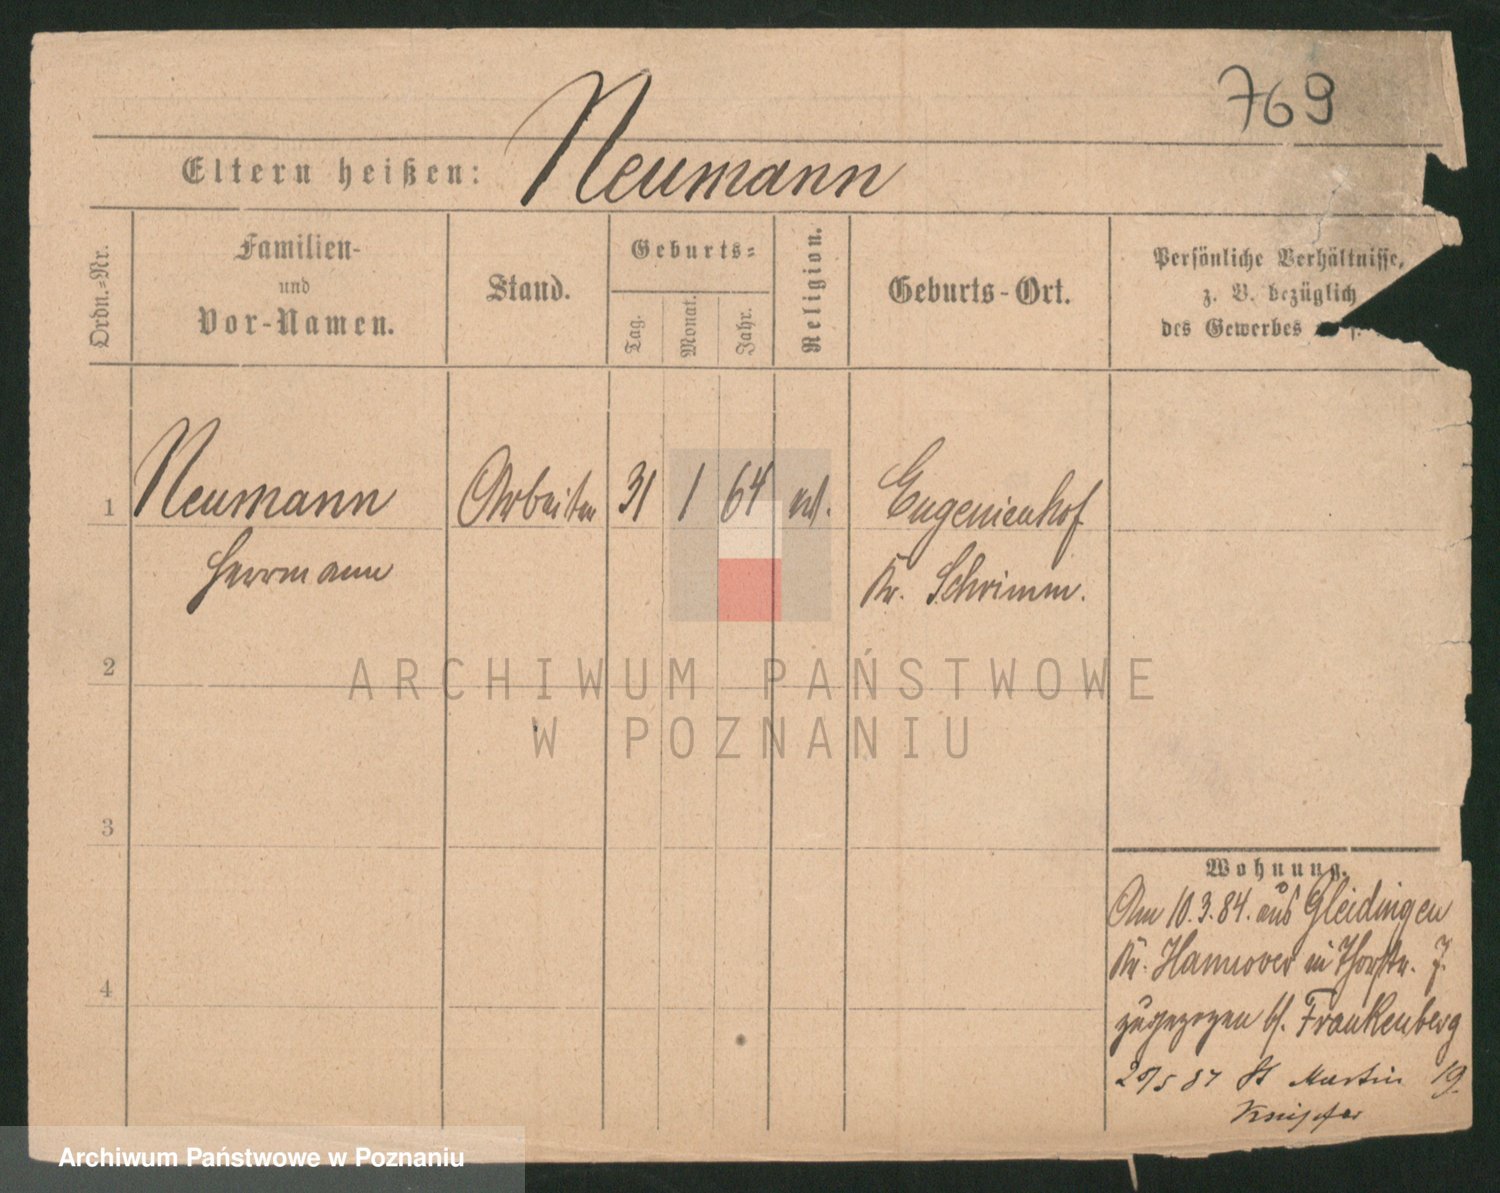 769
Eltern heißen: Neumann
Ordn.-Nr.
Familien-
und
Vor-Namen.
Stand.
Geburts-
Tag.
Monat.
Jahr.
Religion.
Geburts-Ort.
Persönliche Verhältnisse,
z. B. bezüglich
des Gewerbes
1 Neumann Arbeiter 31 1 64 Eugenienhof
Herrmann Kr. Schrimm.
2
3
4
Wohnung.
Am 10.3.84. aus Gleidingen
Kr. Hannover in Thorstr. 7.
zugezogen b/. Frankenberg
84 St Martin 19.
ARCHIWUM PAŃSTWOWE
W POZNANIU
Archiwum Państwowe w Poznaniu